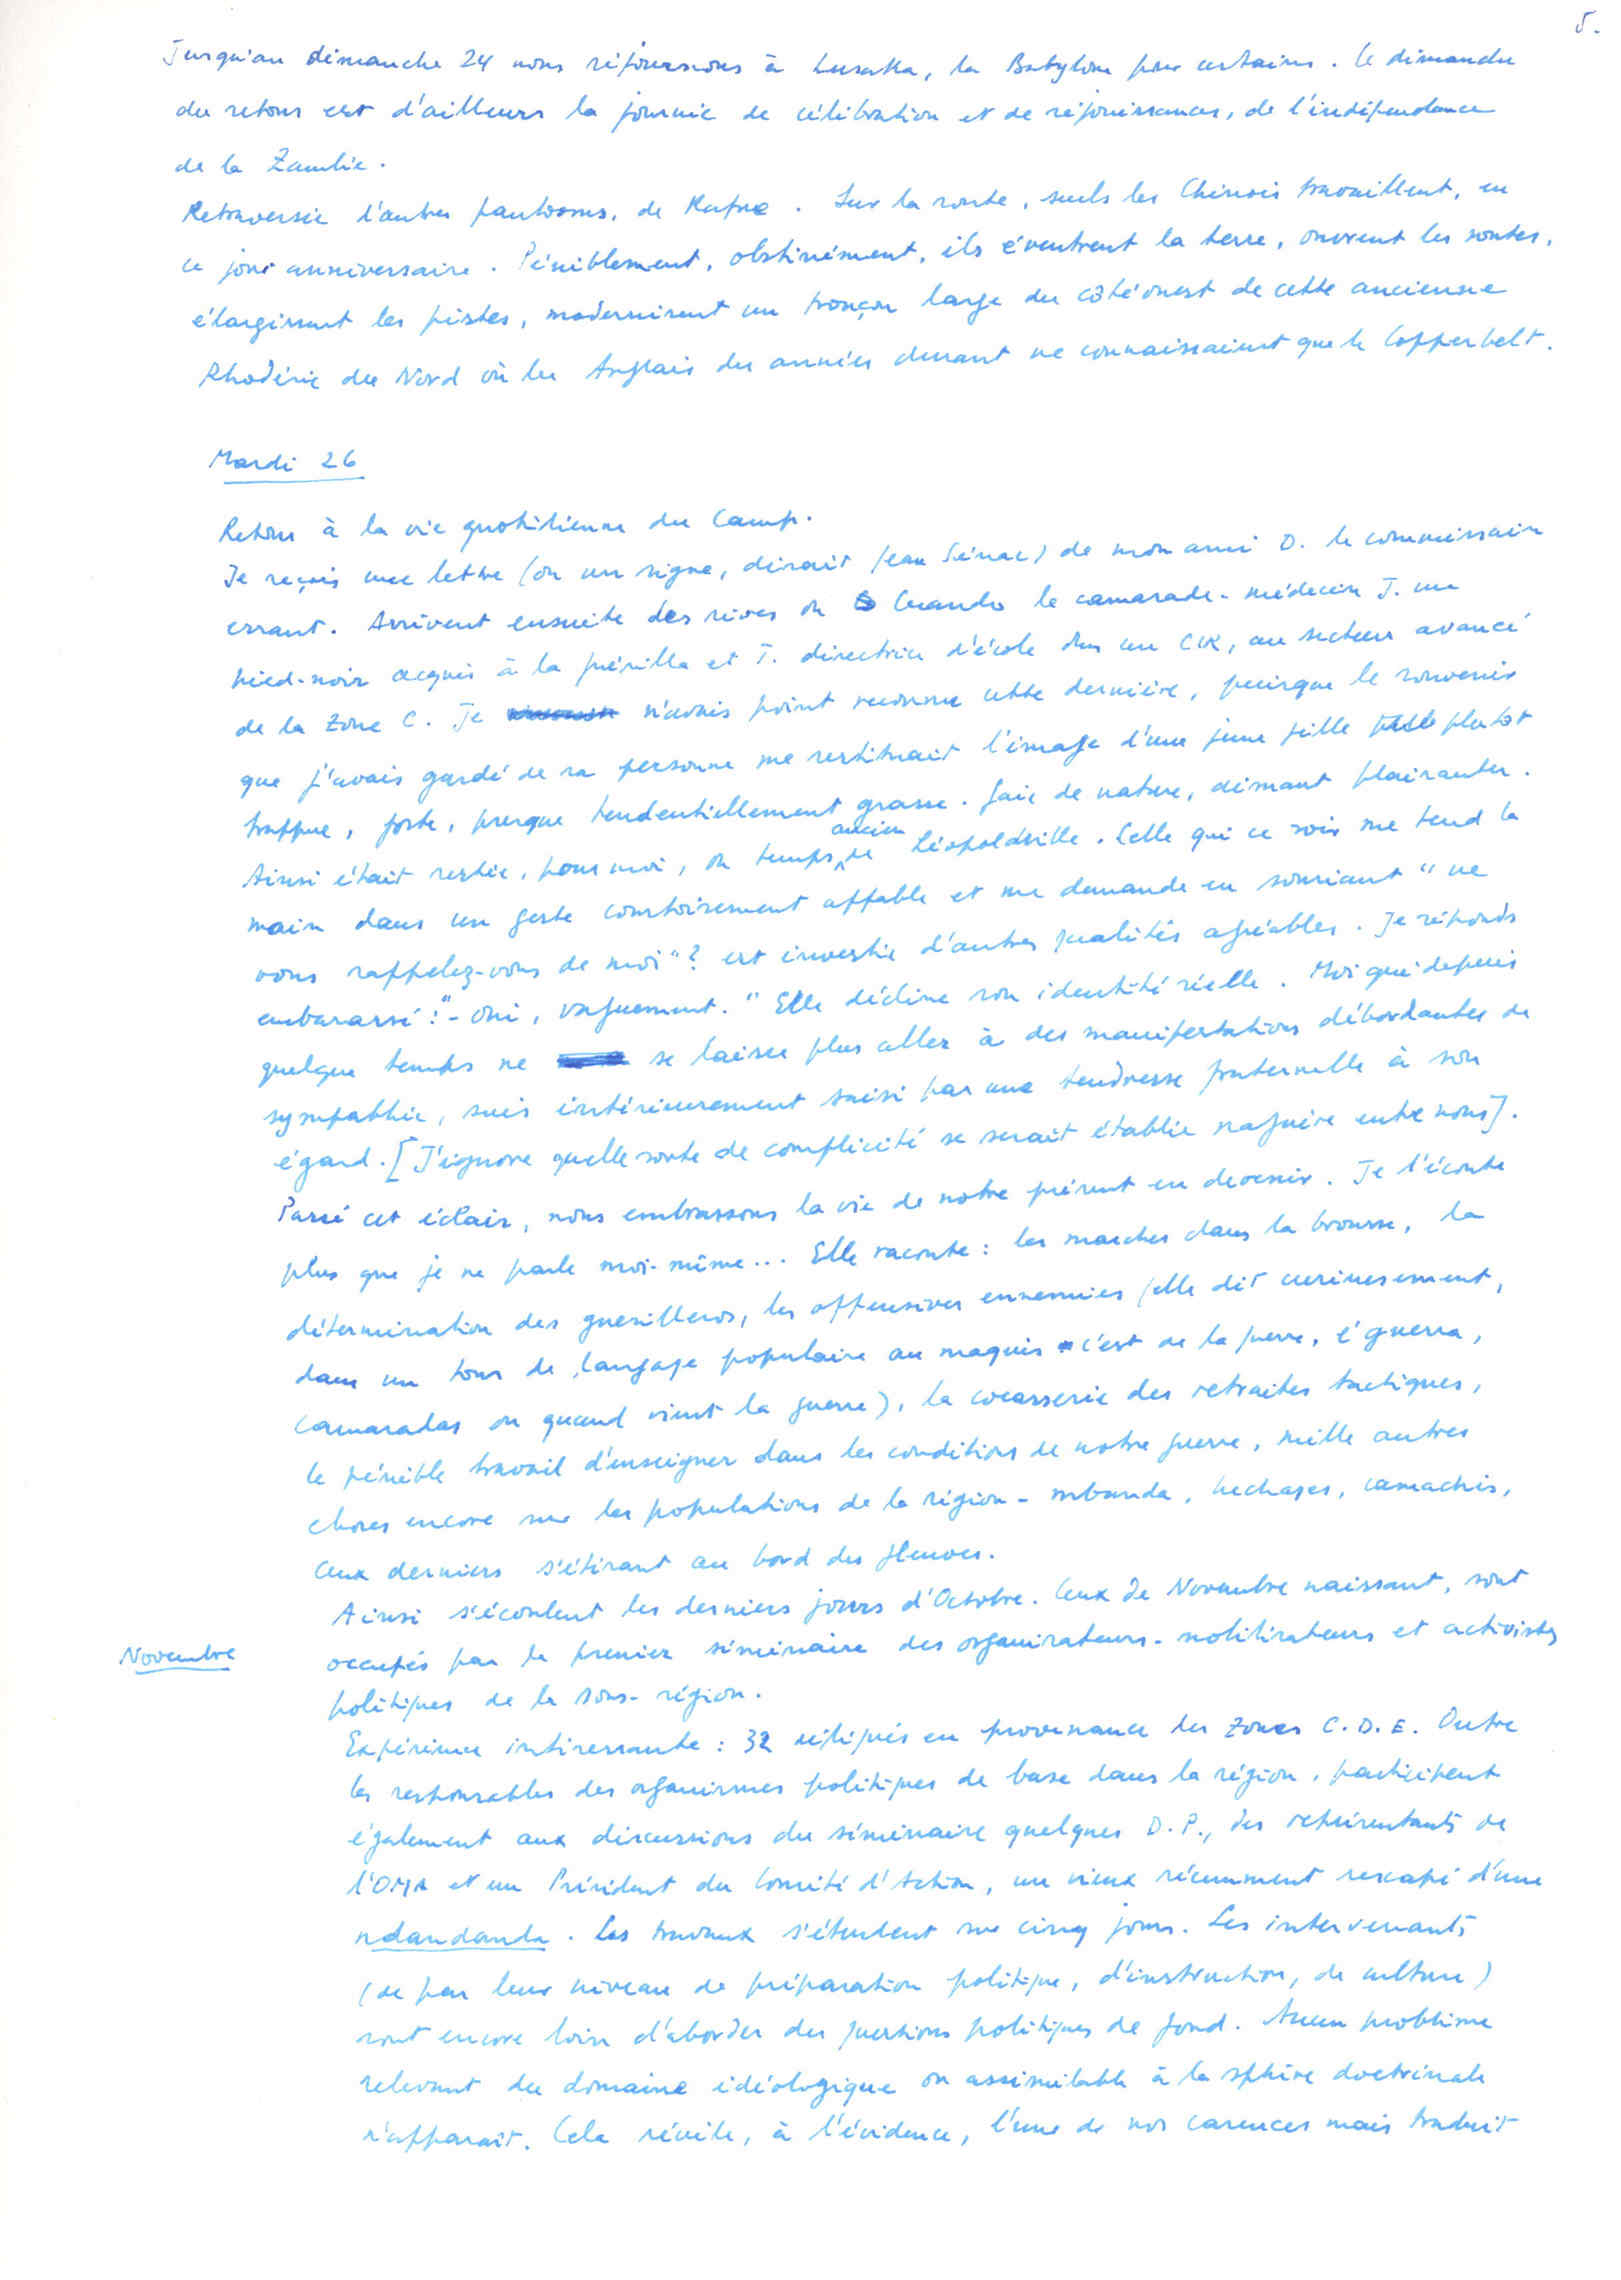 5.
Jusqu'au dimanche 24 nous séjournons à Lusaka, la Babylone pour certains. Le dimanche
du retour est d'ailleurs la journée de célébration et de réjouissances, de l'indépendance
de la Zambie.
Retraversée d'autres fantômes, de Kafue. Sur la route, seuls les Chinois travaillent, en
ce jour anniversaire. Péniblement, obstinément, ils éventrent la terre, ouvrent les routes,
élargissent les pistes, modernisent un tronçon large du côté ouest de cette ancienne
Rhodésie du Nord où les Anglais des années durant ne connaissaient que le Copperbelt.
Mardi 26
Retour à la vie quotidienne du Camp.
Je reçois une lettre (ou un signe, dirait Jean Sénac) de mon ami D. le commissaire
errant. Arrivent ensuite des rives du Cuando le camarade-médecin J. un
pied-noir acquis à la guérilla et T. directrice d'école dans un CIR, au secteur avancé
de la Zone C. Je n'avais point reconnu cette dernière, puisque le souvenir
que j'avais gardé de sa personne me restituait l'image d'une jeune fille plutôt
trappue, forte, presque tendentiellement grasse. Gaie de nature, aimant plaisanter.
Ainsi était restée, pour moi, du temps de ancien Léopoldville. Celle qui ce soir me tend la
main dans un geste courtoisement affable et me demande en souriant "ne
vous rappelez-vous de moi"? est investie d'autres qualités agréables. Je réponds
embarassé: "- Oui, vaguement." Elle décline son identité réelle. Moi qui depuis
quelque temps ne se laisse plus aller à des manifestations débordantes de
sympathie, suis intérieurement saisi par une tendresse fraternelle à son
égard. [J'ignore quelle sorte de complicité se serait établie naguère entre nous].
Passé cet éclair, nous embrassons la vie de notre présent en devenir. Je l'écoute
plus que je ne parle moi-même... Elle raconte: les marches dans la brousse, la
détermination des guerilleros, les offensives ennemies (elle dit curieusement,
dans un tour de langage populaire au maquis c'est de la guerre, é guerra,
camaradas ou quand vient la guerre), la cocasserie des retraites tactiques,
le pénible travail d'enseigner dans les conditions de notre guerre, mille autres
choses encore sur les populations de la région - mbunda, luchazes, camachis,
ceux derniers s'étirant au bord des fleuves.
Ainsi s'écoulent les derniers jours d'Octobre. Ceux de Novembre naissant, sont
Novembre
occupés par le premier séminaire des organisateurs-mobilisateurs et activistes
politiques de la sous-région.
Expérience intéressante: 32 délégués en provenance des Zones C. D. E. Outre
les responsables des organismes politiques de base dans la région, participent
également aux discussions du séminaire quelques D.P., des représentants de
l'OMA et un Président du Comité d'Action, un vieux récemment rescapé d'une
ndandanda. Les travaux s'étendent sur cinq jours. Les intervenants
(de par leur niveau de préparation politique, d'instruction, de culture)
sont encore loin d'aborder des questions politiques de fond. Aucun problème
relevant du domaine idéologique ou assimilable à la sphère doctrinale
n'apparait. Cela révèle, à l'évidence, l'une de nos carences mais traduit